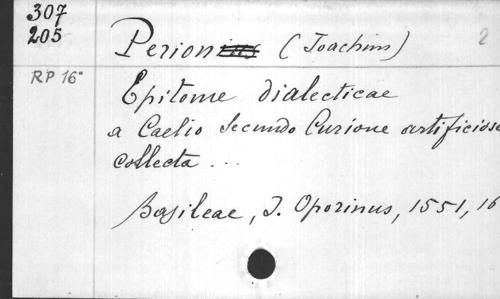 307
205
Perion (Joachim) 2
RP 16°
Epitome dialecticae
a Caelio Secundo Curione artificiose
collecta ...
Basileae, J. Oporinus, 1551, 16